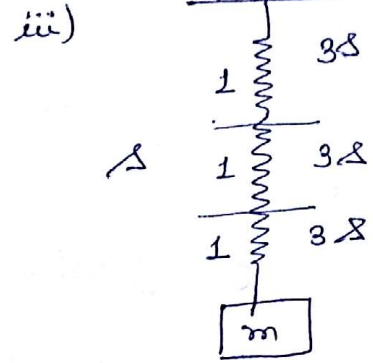 iii)
3s
1
s
1
3s
1
3s
m